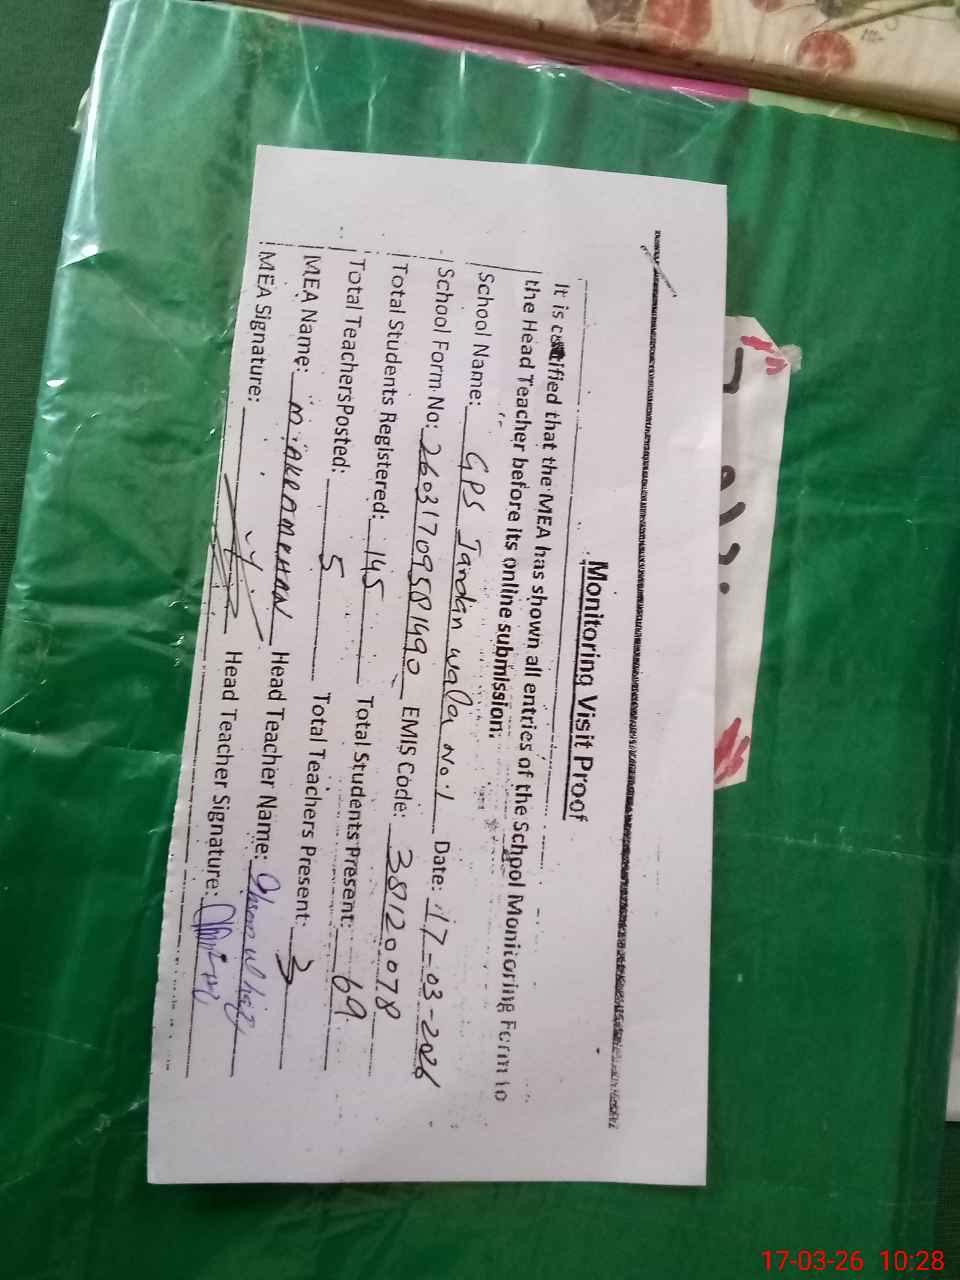 Monitoring Visit Proof
It is certified that the MEA has shown all entries of the School Monitoring Form to
the Head Teacher before its online submission.
School Name: GPS Jardan wala No.1 Date: 17-03-2026
School Form No: 2603170958149 0 EMIS Code: 38120078
Total Students Registered: 145 Total Students Present: 69
Total TeachersPosted: 5 Total Teachers Present: 3
MEA Name: M. AKRAM KHAN Head Teacher Name: Ahsan ul haq
MEA Signature: Head Teacher Signature:
17-03-26 10:28